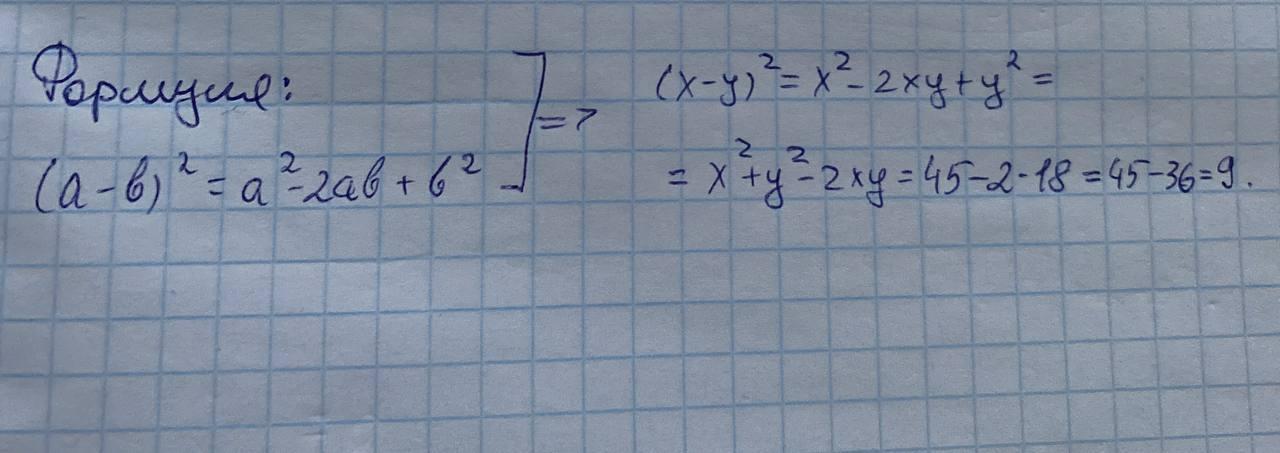 Формула:
(a-b)² = a²-2ab + b² ] =>
(x-y)² = x² - 2xy + y² =
= x² + y² - 2xy = 45-2·18 = 45-36=9.